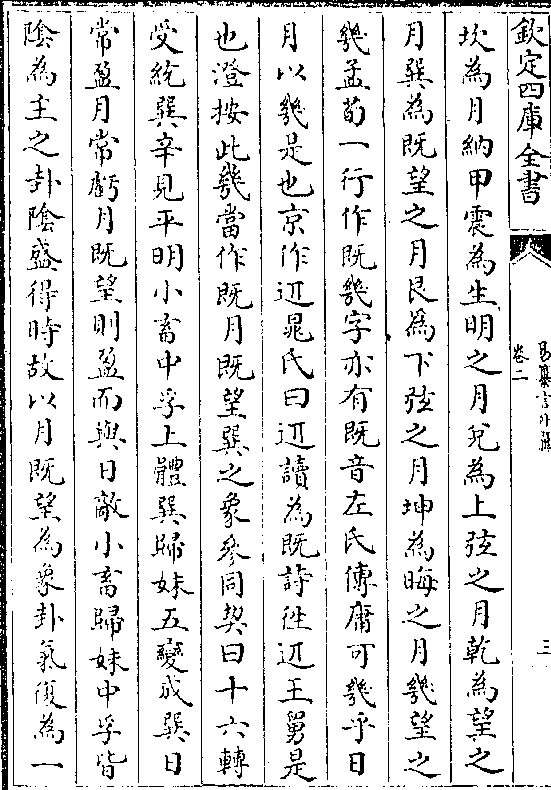 欽定四庫全書
易纂言外翼
卷二
三
坎為月納甲震為生明之月兌為上弦之月乾為望之
月巽為既望之月艮為下弦之月坤為晦之月幾望之
幾孟荀一行作既幾字亦有既音左氏傳庸可幾乎日
月以幾是也京作近晁氏曰近讀為既詩徃近王舅是
也澄按此幾當作既月既望巽之象參同契曰十六轉
受統巽辛見平明小畜中孚上體巽歸妹五變成巽日
常盈月常虧月既望則盈而與日敵小畜歸妹中孚皆
隂為主之卦隂盛得時故以月既望為象卦氣復為一